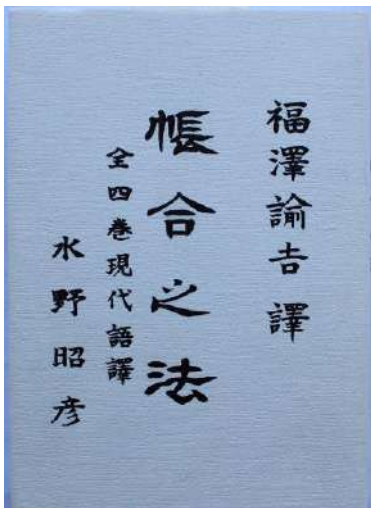 福澤諭吉譯
帳合之法
全四巻現代語譯
水野昭彦